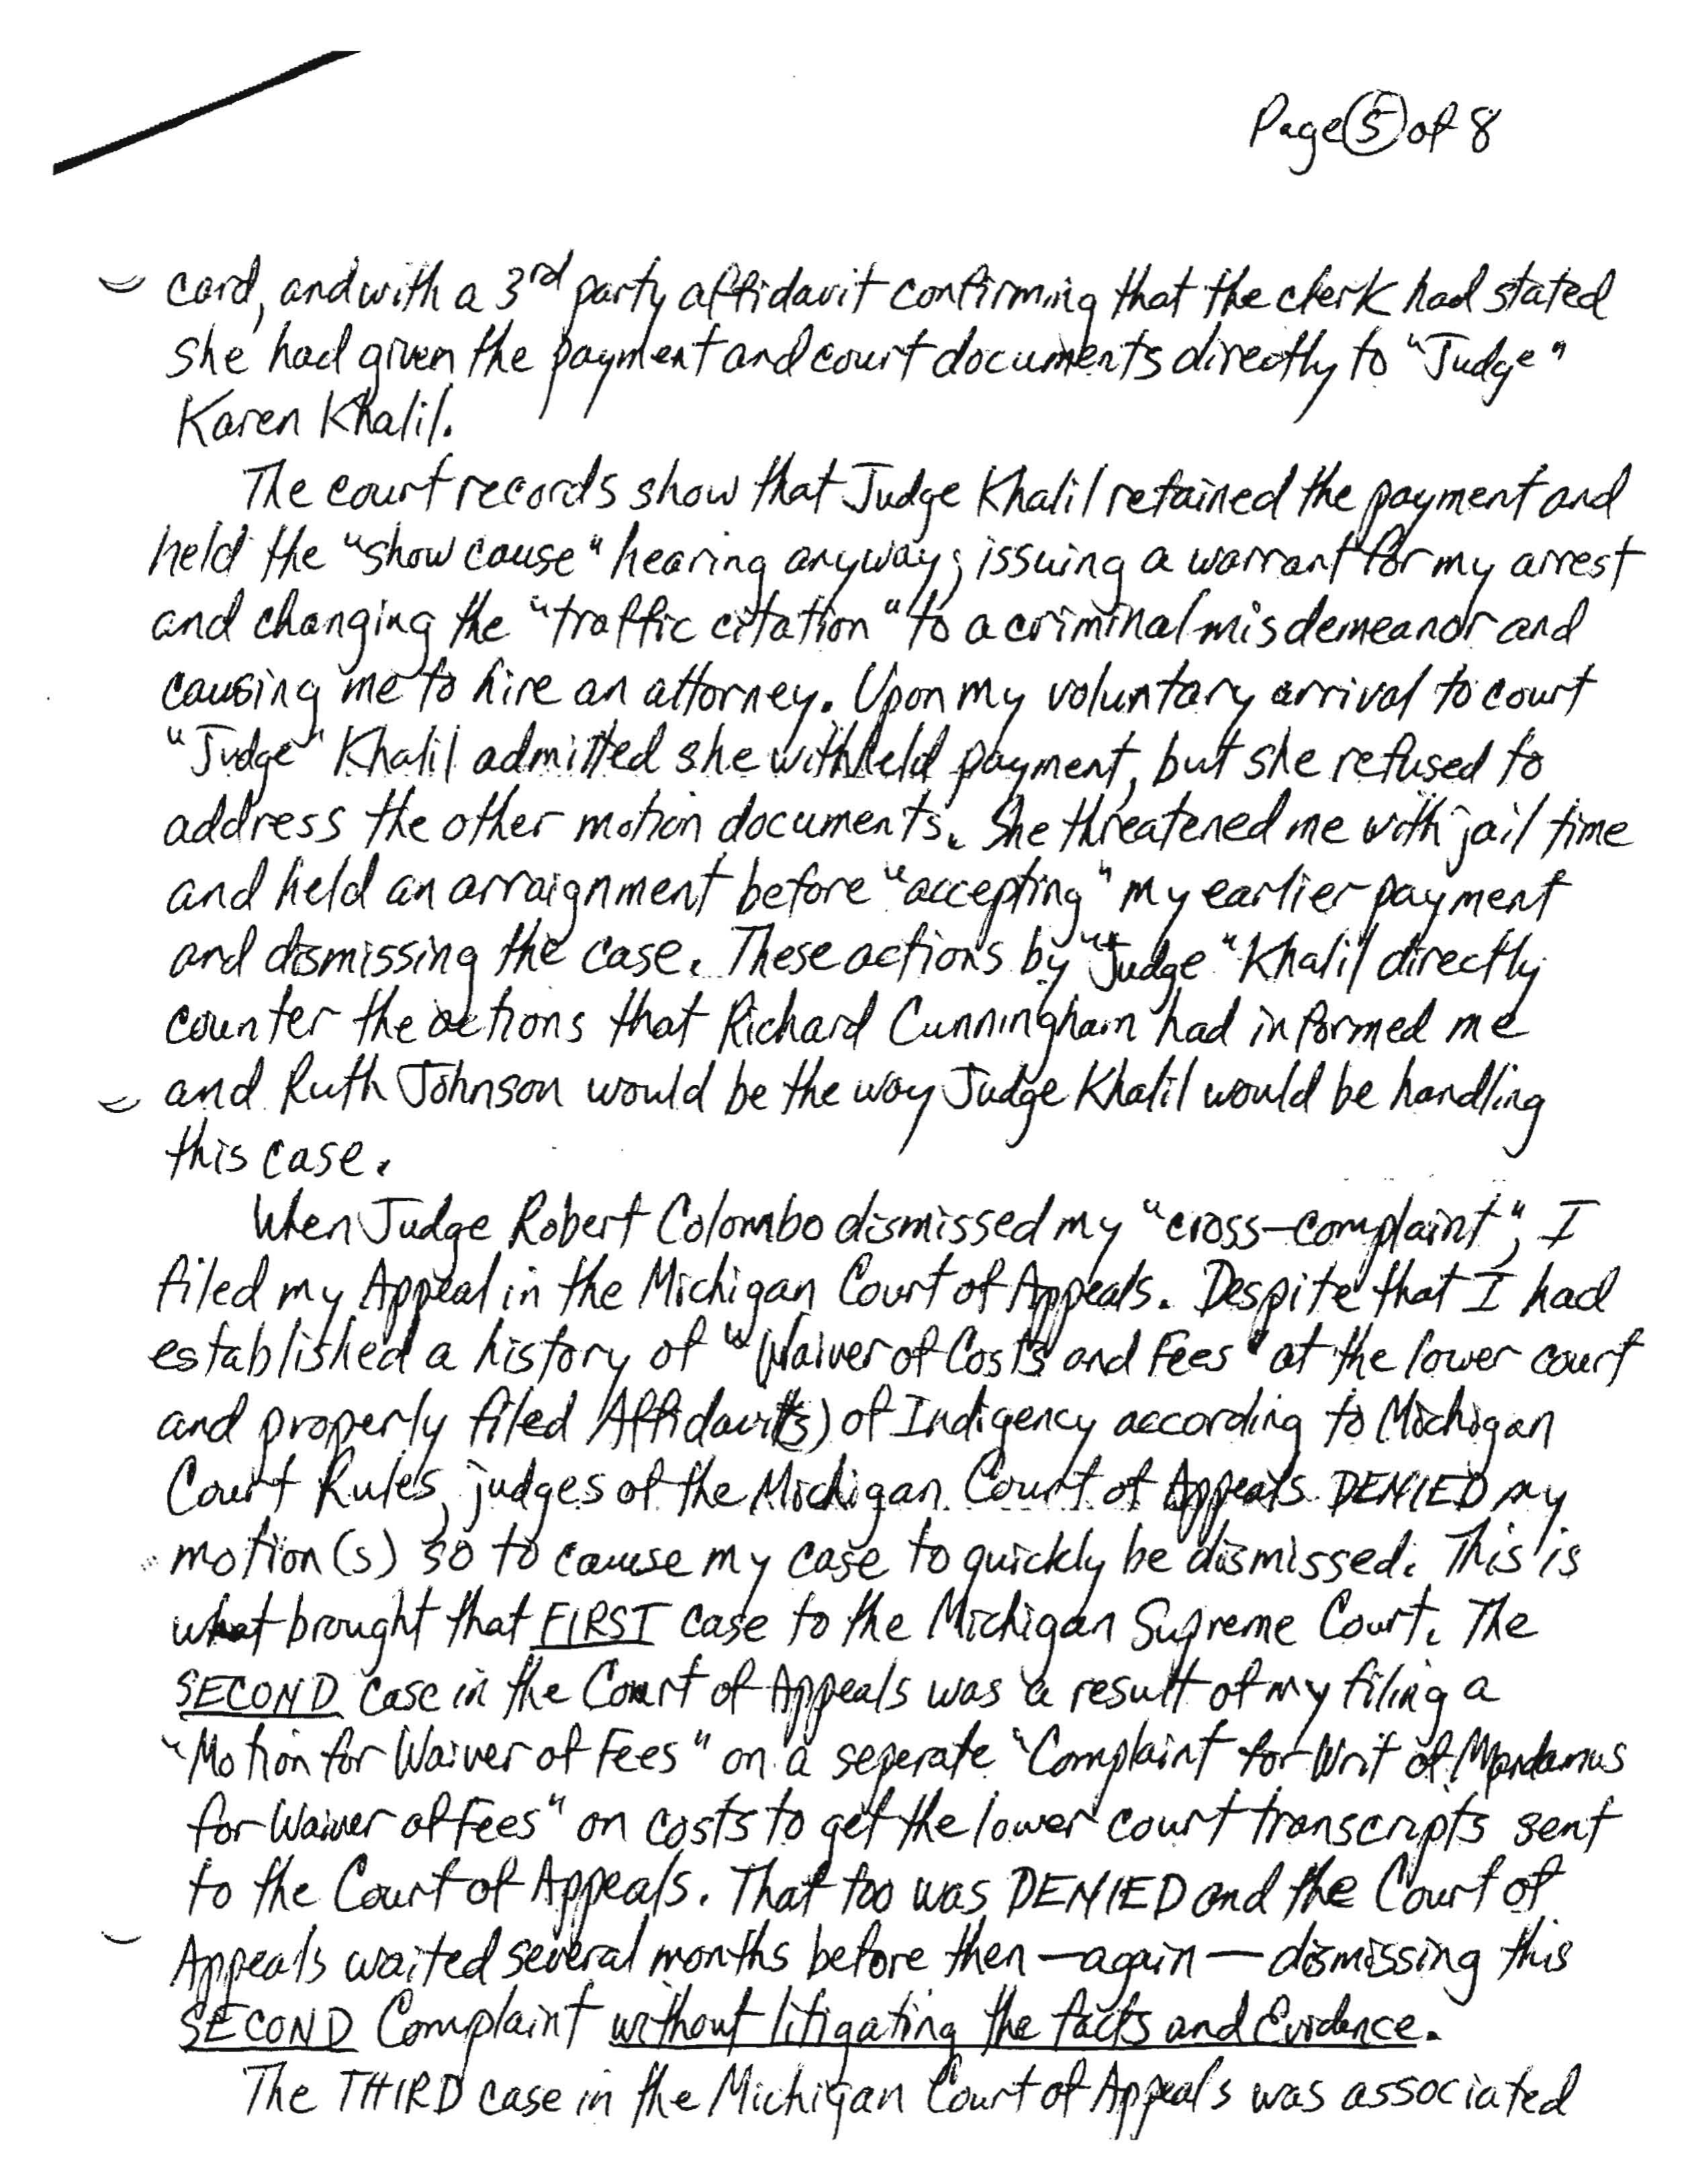 Page 5 of 8
card, and with a 3rd party affidavit confirming that the clerk had stated
she had given the payment and court documents directly to "Judge"
Karen Khalil.
The court records show that Judge Khalil retained the payment and
held the "show cause" hearing anyway; issuing a warrant for my arrest
and changing the "traffic citation" to a criminal misdemeanor and
causing me to hire an attorney. Upon my voluntary arrival to court
"Judge" Khalil admitted she withheld payment, but she refused to
address the other motion documents. She threatened me with jail time
and held an arraignment before "accepting" my earlier payment
and dismissing the case. These actions by "Judge" Khalil directly
counter the actions that Richard Cunningham had informed me
and Ruth Johnson would be the way Judge Khalil would be handling
this case.
When Judge Robert Colombo dismissed my "cross-complaint", I
filed my Appeal in the Michigan Court of Appeals. Despite that I had
established a history of "Waiver of Costs and Fees" at the lower court
and properly filed Affidavit(s) of Indigency according to Michigan
Court Rules, judges of the Michigan Court of Appeals DENIED my
motion(s) so to cause my case to quickly be dismissed. This is
what brought that FIRST case to the Michigan Supreme Court. The
SECOND case in the Court of Appeals was a result of my filing a
"Motion for Waiver of Fees" on a seperate "Complaint for Writ of Mandamus
for Waiver of Fees" on costs to get the lower court transcripts sent
to the Court of Appeals. That too was DENIED and the Court of
Appeals waited several months before then—again—dismissing this
SECOND Complaint without litigating the facts and Evidence.
The THIRD case in the Michigan Court of Appeals was associated